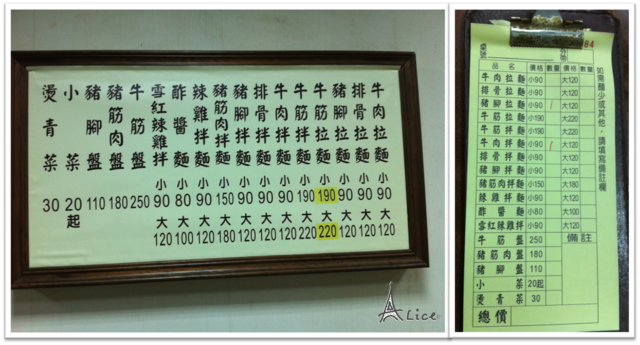 牛肉拉麵 小90 大120
排骨拉麵 小90 大120
豬腳拉麵 小90 大120
牛筋拉麵 小190 大220
牛筋拌麵 小190 大220
牛肉拌麵 小90 大120
排骨拌麵 小90 大120
豬腳拌麵 小90 大120
豬筋肉拌麵 小150 大180
辣雞拌麵 小90 大120
酢醬麵 小80 大100
雪紅辣雞拌 小90 大120
牛筋盤 250
豬筋肉盤 180
豬腳盤 110
小菜 20起
燙青菜 30
ALice
84
桌號 外帶
品名 價格 數量 價格 數量
牛肉拉麵 小90 大120
排骨拉麵 小90 大120
豬腳拉麵 小90 / 大120
牛筋拉麵 小190 大220
牛筋拌麵 小190 大220
牛肉拌麵 小90 / 大120
排骨拌麵 小90 大120
豬筋肉拌麵 小150 大180
辣雞拌麵 小90 大120
酢醬麵 小80 大100
雪紅辣雞拌 小90 大120
牛筋盤 250 備註
豬筋肉盤 180
豬腳盤 110
小菜 20起
燙青菜 30
總價
如需麵少或其他，請填寫備註欄